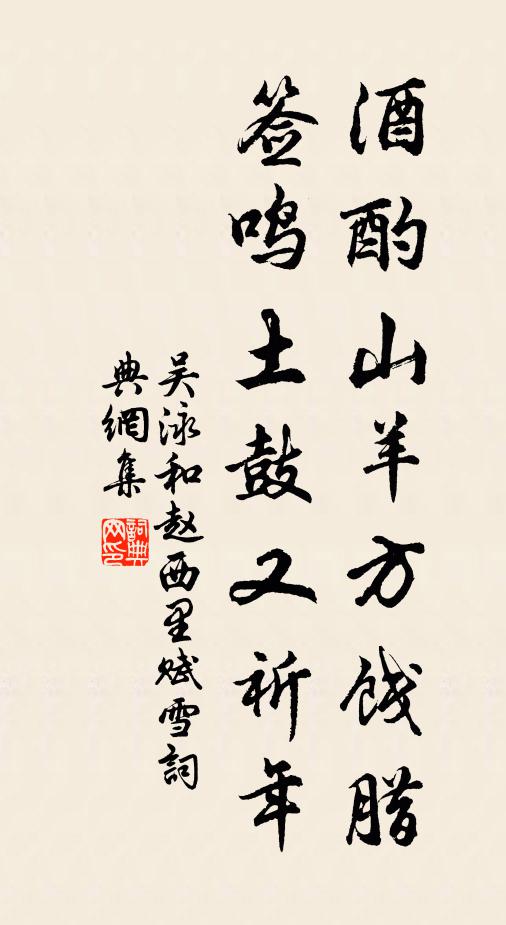 酒酌山羊方饯腊
签鸣土鼓又祈年
吴泳和赵西里赋雪詞
典網集
詞典网印